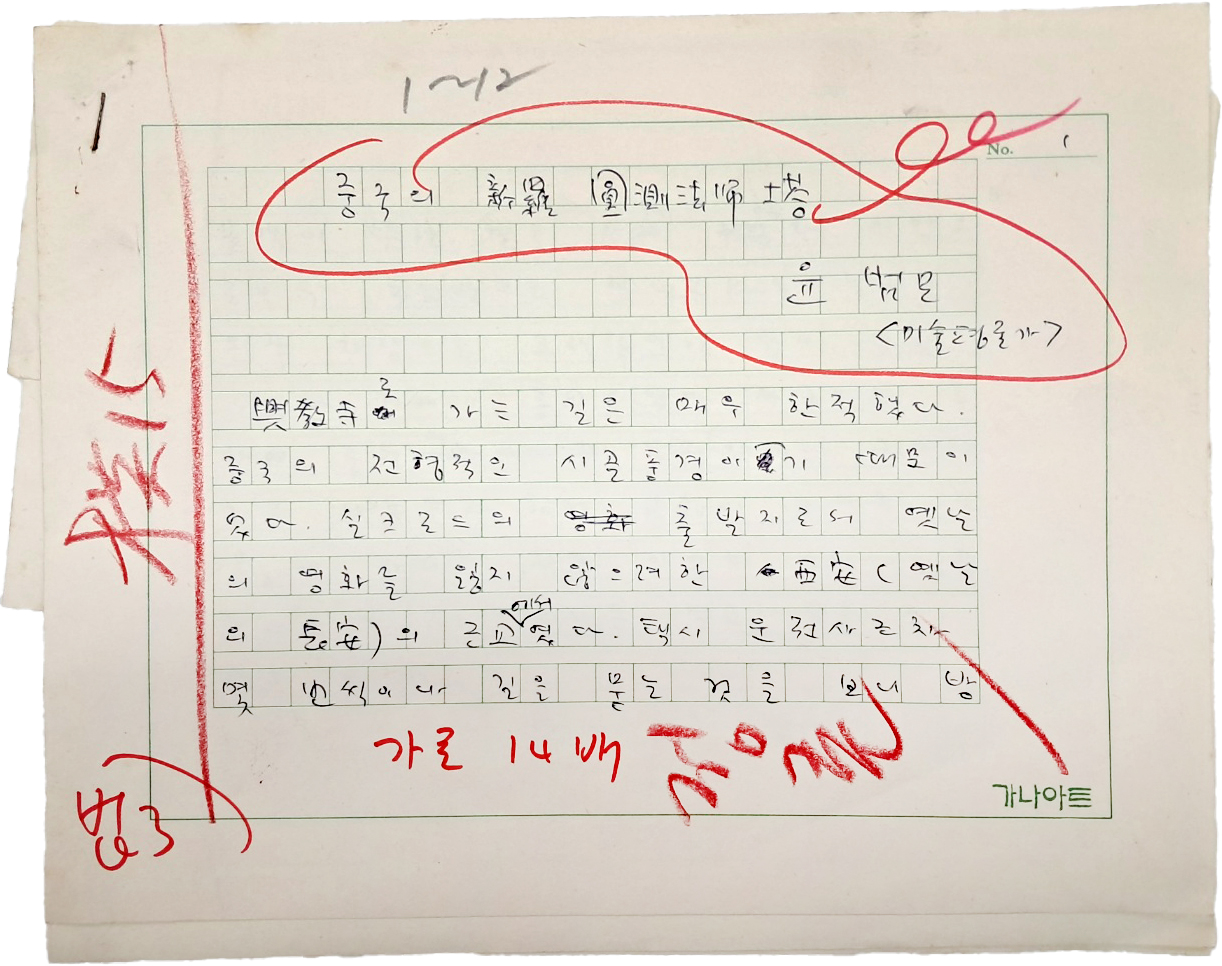 1~12
No. 1
중국의 新羅 圓測法師 塔
윤범모
<미술평론가>
興敎寺로 가는 길은 매우 한적했다.
중국의 전형적인 시골풍경이기 때문이
었다. 실크로드의 영화 출발지로서 옛날
의 영화를 잃지 않으려한 西安(옛날
의 長安)의 근교에서였다. 택시 운전사조차
몇 번씩이나 길을 묻는 것을 보니 방
가로 14배
가나아트